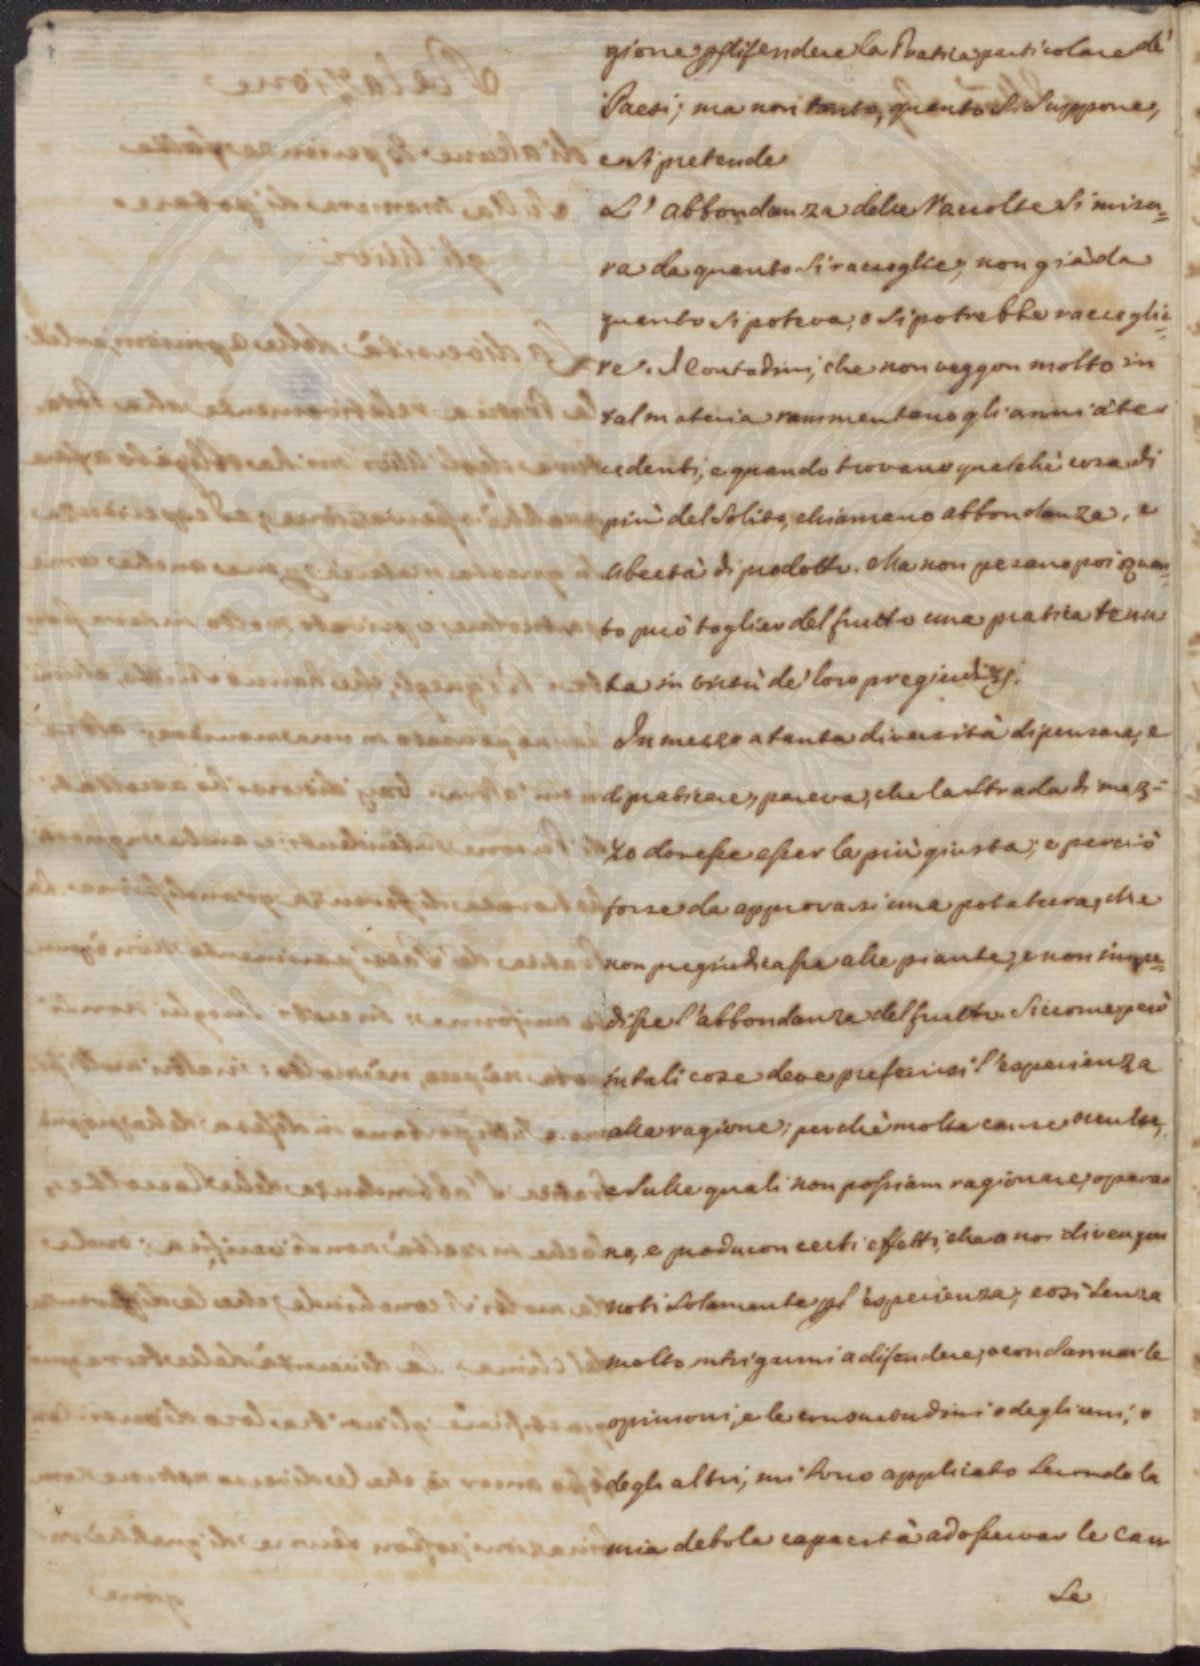 gione per difendere la Pratica particolare de'
Paesi; ma non tanto, quanto si suppone,
e si pretende
L' abbondanza delle Raccolte si misu=
ra da quanto si raccoglie, non già da
quanto si poteva, o si potrebbe raccoglie=
re. I Contadini, che non veggon molto in
tal materia rammentano gli anni ante
cedenti, e quando trovano qualche cosa di
più del solito, chiamano abbondanza, e
ubertà di prodotto. Ma non pesano poi quan=
to può toglier del frutto una pratica tenu
ta in virtù de' loro pregiudizj.
In mezzo a tanta diversità di pensare, e
di praticare, pareva, che la strada di mez=
zo dovesse esser la più giusta; e perciò
forse da approvarsi una potatura, che
non pregiudicasse alle piante, e non impe=
disse l'abbondanza del frutto. Siccome però
in tali cose deve preferirsi l'esperienza
alla ragione; perchè molte cause occulte,
e sulle quali non possiam ragionare, opera
no, e producon certi effetti, che a noi divengon
noti solamente per esperienza; così senza
molto intrigarmi a difendere, o condannar le
opinioni, e le consuetudini o degli uni, o
degli altri, mi sono applicato secondo la
mia debole capacità ad osservar le cau
se